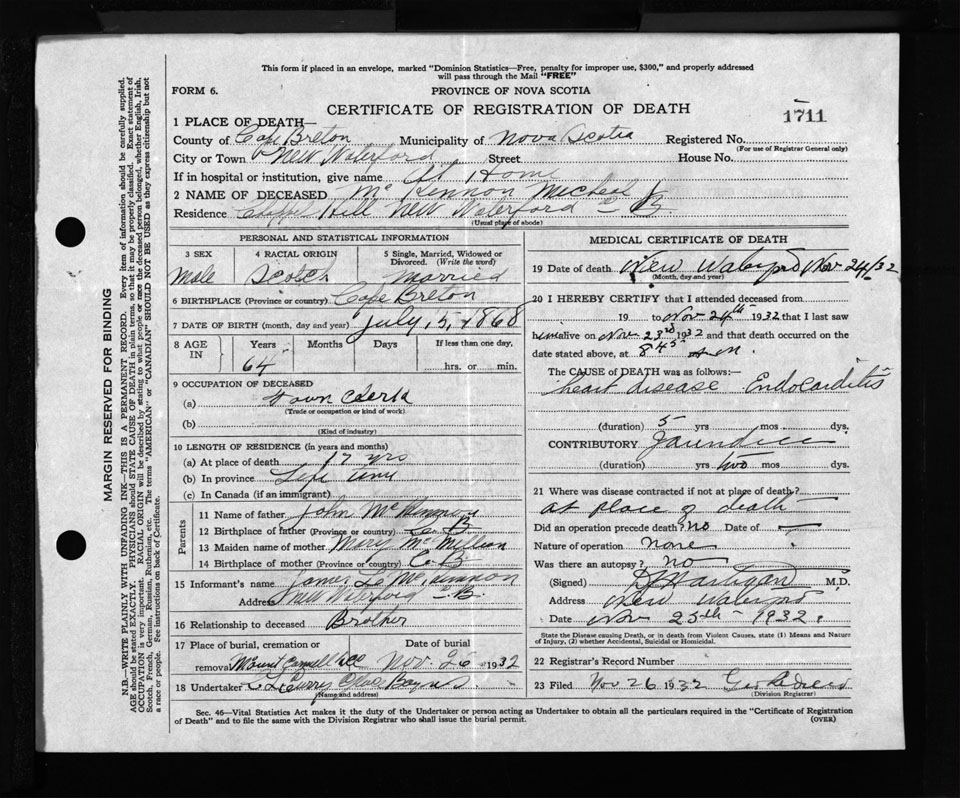 This form if placed in an envelope, marked "Dominion Statistics—Free, penalty for improper use, $300," and properly addressed
will pass through the Mail "FREE"
FORM 6.
PROVINCE OF NOVA SCOTIA
CERTIFICATE OF REGISTRATION OF DEATH
1711
1 PLACE OF DEATH—
County of Cape Breton Municipality of Nova Scotia Registered No.
(For use of Registrar General only)
City or Town New Waterford Street House No.
If in hospital or institution, give name At Home
2 NAME OF DECEASED Mc Kennon Micheal
Residence Hill New Waterford C B.
(Usual place of abode)
PERSONAL AND STATISTICAL INFORMATION
3 SEX
Male
4 RACIAL ORIGIN
Scotch
5 Single, Married, Widowed or Divorced. (Write the word)
Married
6 BIRTHPLACE (Province or country) Cape Breton
7 DATE OF BIRTH (month, day and year) July, 5, 1868
8 AGE IN
Years Months Days If less than one day,
64 hrs. or min.
9 OCCUPATION OF DECEASED
(a) Town Clerk
(Trade or occupation or kind of work)
(b)
(Kind of industry)
10 LENGTH OF RESIDENCE (in years and months)
(a) At place of death 17 yrs
(b) In province Life time
(c) In Canada (if an immigrant)
Parents
11 Name of father John McKennon
12 Birthplace of father (Province or country) C B
13 Maiden name of mother Mary McMillian
14 Birthplace of mother (Province or country) C. B.
15 Informant's name James McKennon
Address New Waterford C.B.
16 Relationship to deceased Brother
17 Place of burial, cremation or removal Mount Carmell Date of burial Nov. 26 1932
18 Undertaker Curry Glace Bay N.S.
(Name and address)
MEDICAL CERTIFICATE OF DEATH
19 Date of death New Waterford Nov. 24/32
(Month, day and year)
20 I HEREBY CERTIFY that I attended deceased from
19 to Nov 24th 1932 that I last saw
him alive on Nov 23rd 1932 and that death occurred on the
date stated above, at 8 45 A M
The CAUSE of DEATH was as follows:—
heart disease Endocarditis
(duration) 5 yrs mos dys.
CONTRIBUTORY Jaundice
(duration) yrs two mos dys.
21 Where was disease contracted if not at place of death?
at place of death
Did an operation precede death? No Date of —
Nature of operation None
Was there an autopsy? No
(Signed) Hartigan M.D.
Address New Waterford
Date Nov 25th 1932.
State the Disease causing Death, or in death from Violent Causes, state (1) Means and Nature
of Injury, (2) whether Accidental, Suicidal or Homicidal.
22 Registrar's Record Number
23 Filed Nov 26 1932 Geo
(Division Registrar)
Sec. 46—Vital Statistics Act makes it the duty of the Undertaker or person acting as Undertaker to obtain all the particulars required in the "Certificate of Registration
of Death" and to file the same with the Division Registrar who shall issue the burial permit.
(OVER)
MARGIN RESERVED FOR BINDING
N.B.—WRITE PLAINLY WITH UNFADING INK—THIS IS A PERMANENT RECORD. Every item of information should be carefully supplied.
AGE should be stated EXACTLY. PHYSICIANS should STATE CAUSE OF DEATH in plain terms, so that it may be properly classified. Exact statement of
OCCUPATION is very important. RACIAL ORIGIN will be described by stating to what people or race the deceased person belonged, whether English, Irish,
Scotch, French, German, Russian, Ruthenian, etc. The terms "AMERICAN" or "CANADIAN" SHOULD NOT BE USED as they express citizenship but not
a race or people. See instructions on back of Certificate.